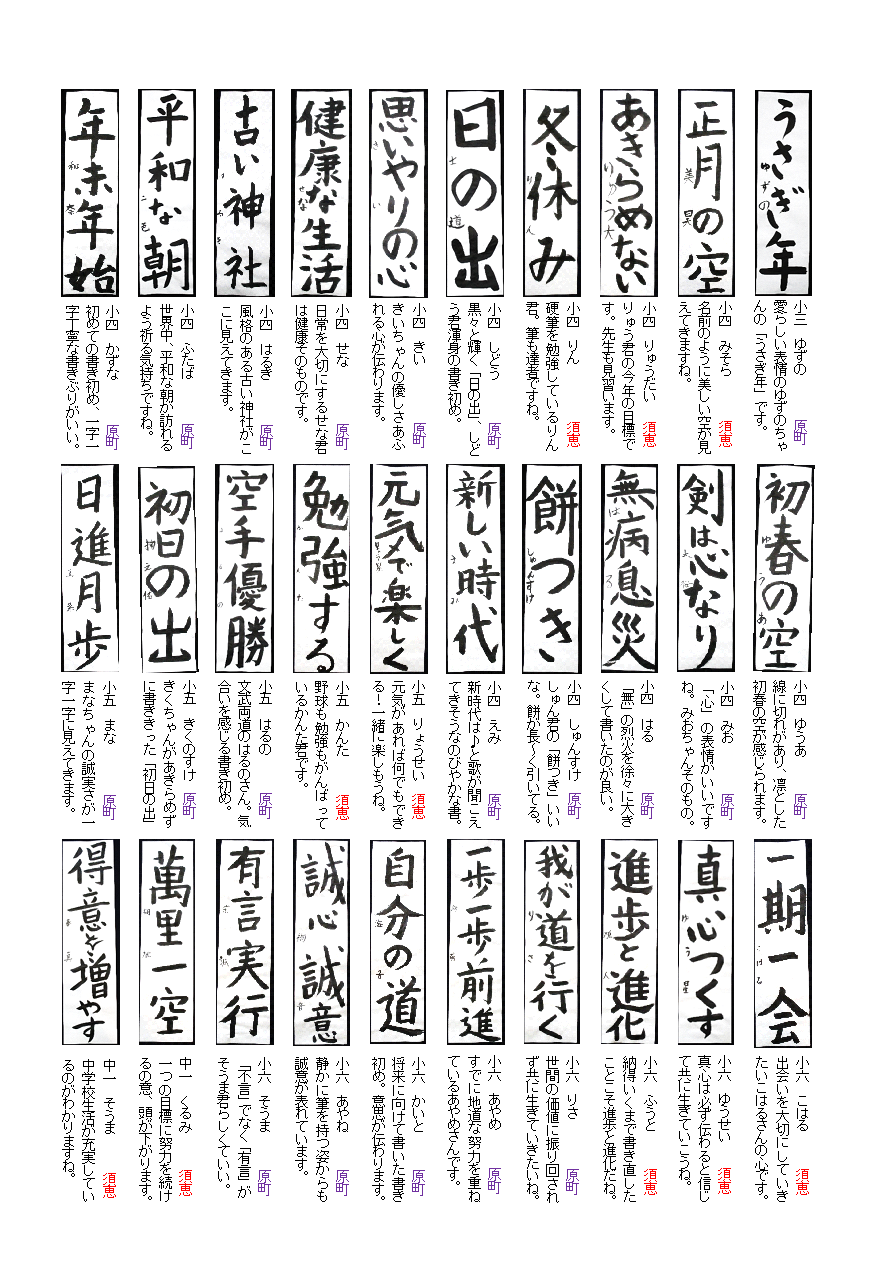 うさぎ年
小三　ゆずの　原町
愛らしい表情のゆずのちゃ
んの「うさぎ年」です。
正月の空
小四　みそら　須恵
名前のように美しい空が見
えてきますね。
あきらめない
小四　りゅうだい　須恵
りゅう君の今年の目標で
す。先生も見習います。
冬休み
小四　りん　須恵
硬筆を勉強しているりん
君。筆も達者ですね。
日の出
小四　しどう　原町
黒々と輝く「日の出」、しど
う君渾身の書き初め。
思いやりの心
小四　きい　原町
きいちゃんの優しさあふ
れる心が伝わります。
健康な生活
小四　せな　原町
日常を大切にするせな君
は健康そのものです。
古い神社
小四　はるき　原町
風格のある古い神社がこ
こに見えてきます。
平和な朝
小四　ふたば　原町
世界中、平和な朝が訪れる
よう祈る気持ちですね。
年末年始
小四　かずな　原町
初めての書き初め、一字一
字丁寧な書きぶりがいい。
初春の空
小四　ゆうあ　原町
線に切れがあり、凛とした
初春の空が感じられます。
剣は心なり
小四　みお　原町
「心」の表情がいいです
ね。みおちゃんそのもの。
無病息災
小四　はる　原町
「無」の烈火を徐々に大き
くして書いたのが良い。
餅つき
しゅんすけ
小四　しゅんすけ　原町
しゅん君の「餅つき」いい
な。餅が長～く引いてる。
新しい時代
小四　えみ　原町
新時代は♪と歌が聞こえ
てきそうなのびやかな書。
元気で楽しく
小五　りょうせい　須恵
元気があれば何でもでき
る！一緒に楽しもうね。
勉強する
小五　かんた　須恵
野球も勉強もがんばって
いるかんた君です。
空手優勝
小五　はるの　原町
文武両道のはるのさん。気
合いを感じる書き初め。
初日の出
小五　きくのすけ　原町
きくちゃんがあきらめず
に書ききった「初日の出」
日進月歩
小五　まな　原町
まなちゃんの誠実さが一
字一字に見えてきます。
一期一会
小六　こはる　須恵
出会いを大切にしていき
たいこはるさんの心です。
真心つくす
小六　ゆうせい　須恵
真心は必ず伝わると信じ
て共に生きていこうね。
進歩と進化
小六　ふうと　須恵
納得いくまで書き直した
ことこそ進歩と進化だね。
我が道を行く
小六　りさ　原町
世間の価値に振り回され
ず共に生きていきたいね。
一歩一歩前進
小六　あやめ　原町
すでに地道な努力を重ね
ているあやめさんです。
自分の道
小六　かいと　原町
将来に向けて書いた書き
初め。意思が伝わります。
誠心誠意
小六　あやね　原町
静かに筆を持つ姿からも
誠意が表れています。
有言実行
小六　そうま　原町
「不言」でなく「有言」が
そうま君らしくていい。
萬里一空
中一　くるみ　須恵
一つの目標に努力を続け
るの意、頭が下がります。
得意を増やす
中一　そうま　須恵
中学校生活が充実してい
るのがわかりますね。